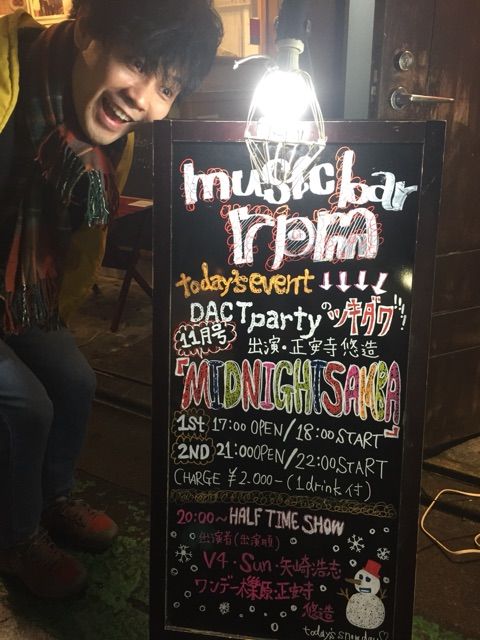 music bar
rpm
today's event ↓↓↓↓
DACTpartyのツキダワッ!
11月号 出演・正安寺悠造
「MIDNIGHTSAMBA」
1st 17:00 OPEN/18:00 START
2ND 21:00 OPEN/22:00 START
CHARGE ¥2.000-(1drink付)
20:00~HALF TIME SHOW
出演者(出演順)
V4・Sun・矢崎浩志
ワンデー櫟原・正安寺
悠造
today's snowday♡